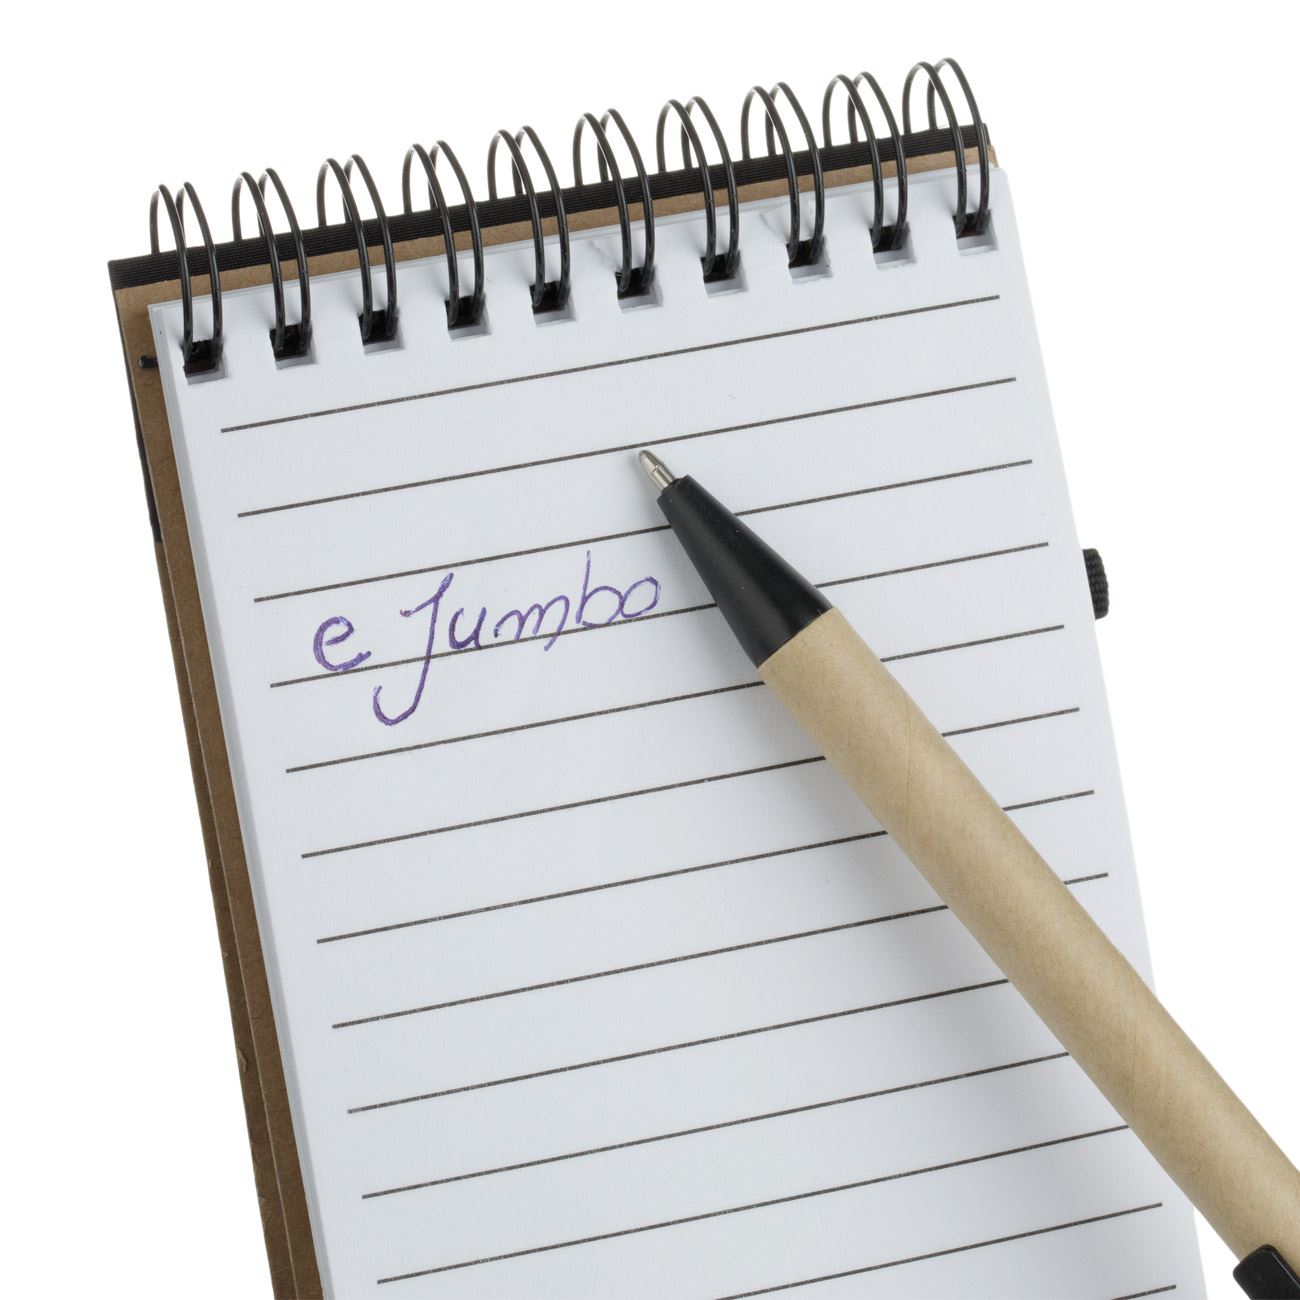 e Jumbo